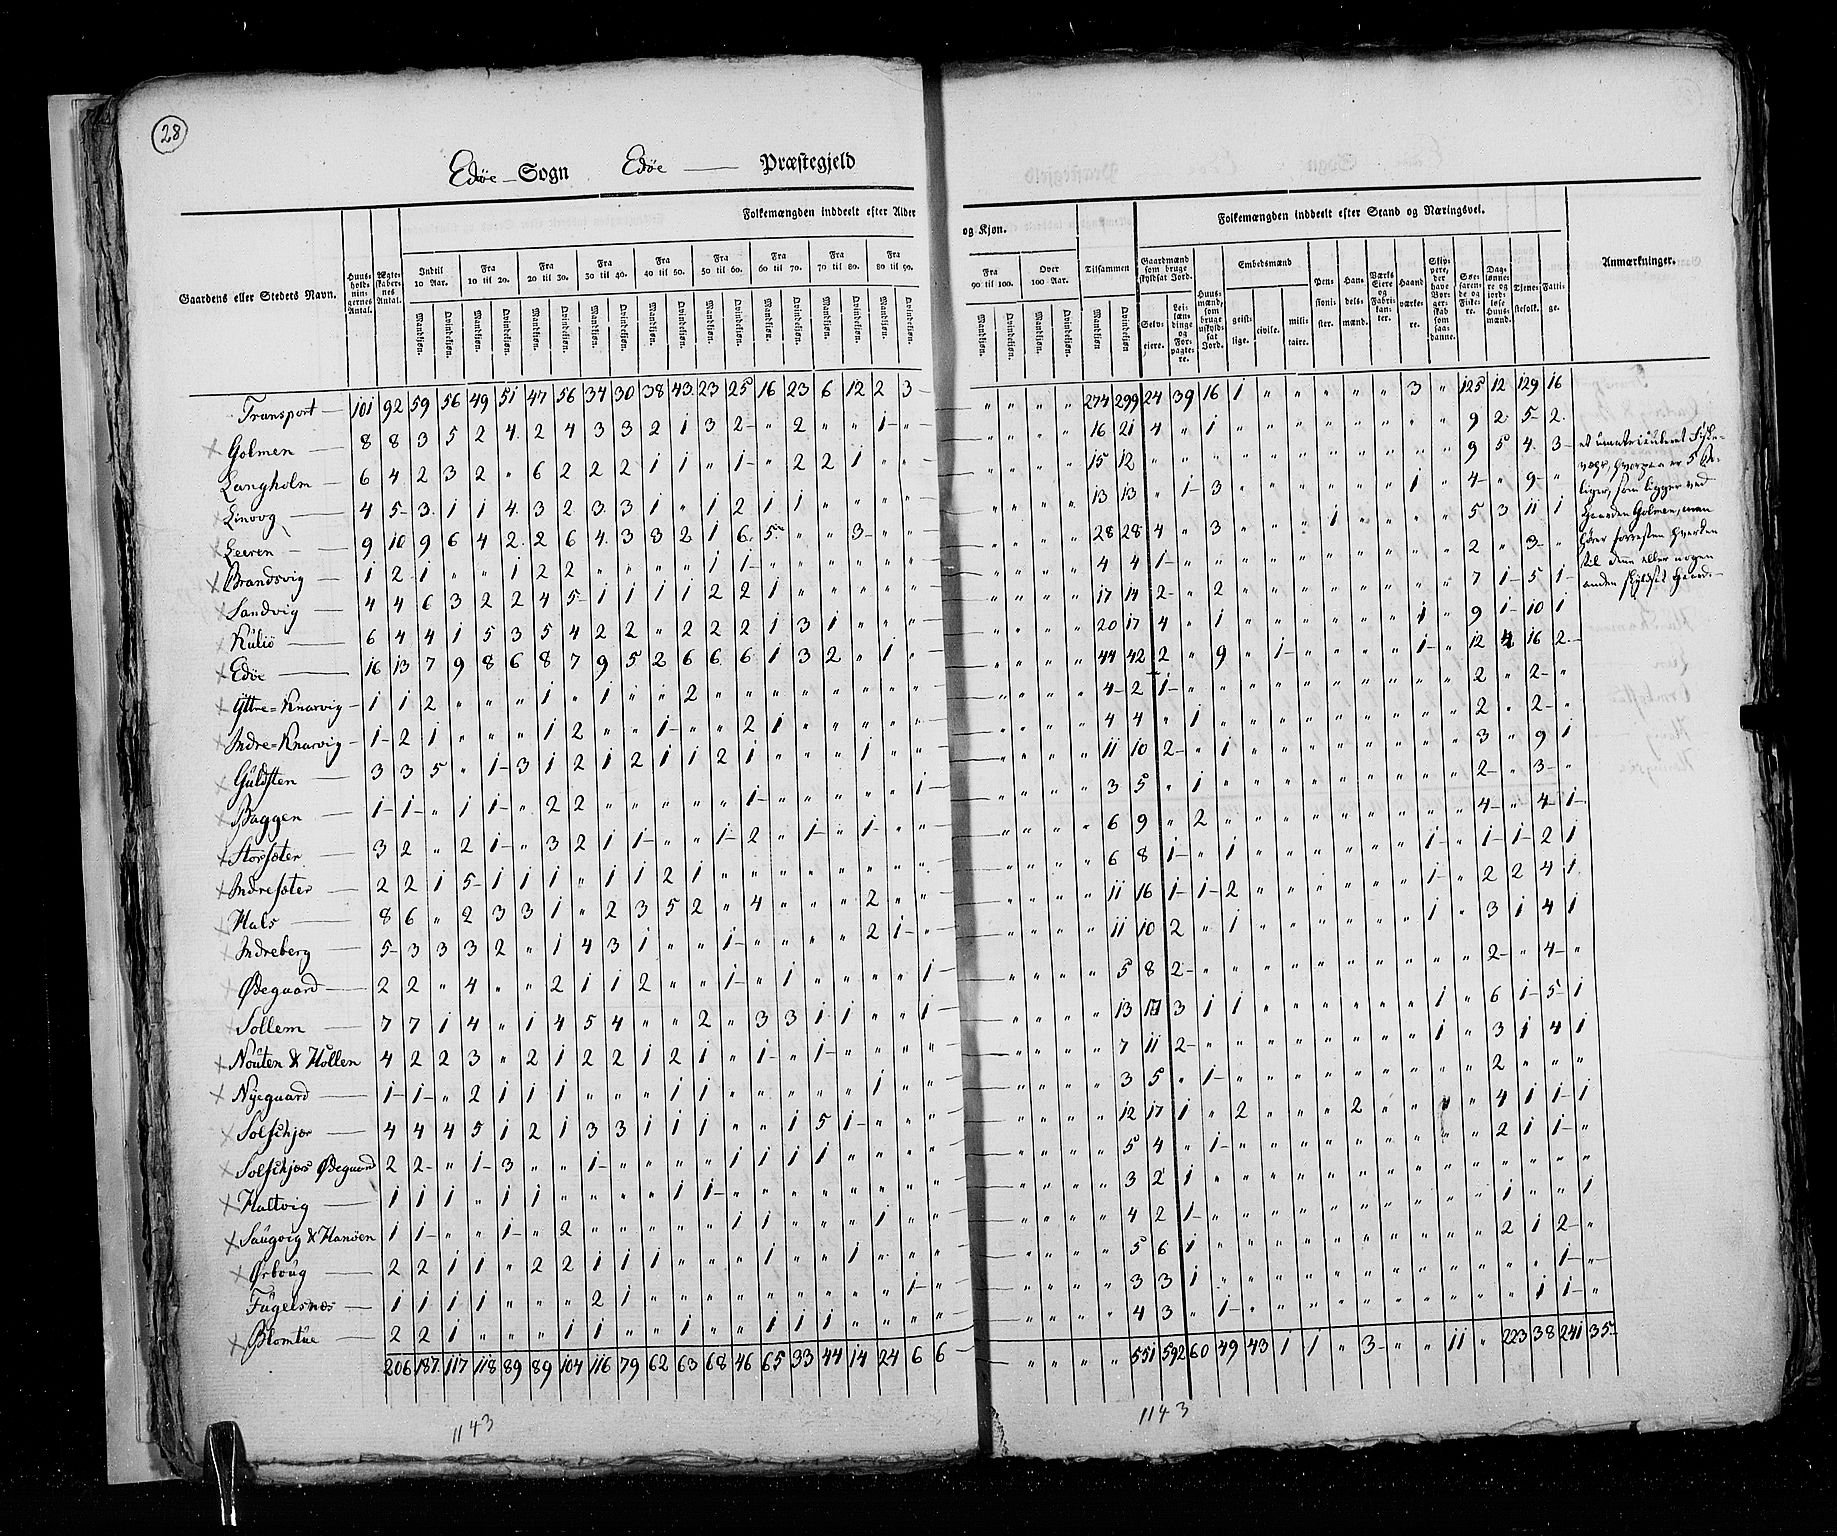 28
Edøe Sogn Edøe Præstegjeld
Folkemængden inddeelt efter Alder og Kjøn.
Folkemængden inddeelt efter Stand og Næringsvei.
Gaardens eller Stedets Navn.
Huusholdningernes Antal.
Ægteskabernes Antal.
Indtil 10 Aar.
Fra 10 til 20.
Fra 20 til 30.
Fra 30 til 40.
Fra 40 til 50.
Fra 50 til 60.
Fra 60 til 70.
Fra 70 til 80.
Fra 80 til 90.
Fra 90 til 100.
Over 100 Aar.
Tilsammen
Mandkjøn. Qvindekjøn.
Gaardmænd som bruge skyldsat Jord.
Selveiere.
Leilændinge og Forpagtere.
Huusmænd, som bruge uskyldsat Jord.
Embedsmænd
geistlige.
civile.
militaire.
Pensionister.
Handelsmænd.
Værks Eiere og Fabrikanter.
Haandværkere.
Skippere, der have Borgerskab som saadanne.
Søefarende og Fiskere.
Daglønnere og jordløse Huusmænd.
Tjenestefolk.
Fattige.
Anmærkninger.
Transport 101 92 59 56 49 51 47 56 34 30 38 43 23 25 16 23 6 12 2 3 " " " " 274 299 24 39 16 1 " " " " " 3 " 125 12 129 16
Golmen 8 8 3 5 2 4 2 4 3 3 2 1 3 2 " 2 " " 1 " " " " " 16 21 4 " 1 " " " " " " " " 9 2 5 2
Langholm 6 4 2 3 2 " 6 2 2 2 1 1 " 1 " 2 2 1 " " " " " " 15 12 " " " " " " " " " " " 9 5 4 3
Linvog 4 5 3 1 1 4 3 2 3 3 1 " 1 2 1 1 " " " " " " " " 13 13 " 1 3 " " " " " " 1 " 4 " 9 "
Leeren 9 10 9 6 4 2 2 6 4 3 3 2 1 6 5 " " 3 " " " " " " 28 28 4 " 3 " " " 1 " " " " 5 3 11 1
Brandsvig 1 2 1 " " 1 2 2 " " " " 1 1 " " " " " " " " " " 4 4 1 " " " " " " " " " " 2 " 3 "
Sandvig 4 4 6 3 2 2 4 5 1 1 1 1 2 2 1 " " " " " " " " " 17 14 2 " 2 " " " " " " " " 7 1 5 1
Kuliø 6 4 4 1 5 3 5 4 2 2 " 2 2 2 1 3 1 " " " " " " " 20 17 4 " 1 " " " " " " 1 " 9 1 10 1
Edøe 16 13 7 9 8 6 8 7 9 5 2 6 6 6 1 3 2 " 1 " " " " " 44 42 2 " 9 " 1 " " " " 1 " 12 4 16 2
Yttre=Knarvig 1 1 2 " " " 1 " 1 " " 2 " " " " " " " " " " " " 4 2 1 " " " " " " " " " " 2 " 2 "
Indre=Knarvig 1 2 1 " " " 1 2 " " 1 " " 2 1 " " " " " " " " " 4 4 " 1 " " " " " " " " 2 " 2 "
Guldsten 3 3 5 " 1 3 1 2 1 2 1 1 2 1 1 " " " 1 " " " " " " 11 10 2 " 1 " " " " " " " " 3 " 9 1
Baggen 1 1 " 1 1 " 2 2 " " " " " 1 " " " " " 1 " " " " 3 5 " 1 " " " " " " " " " 2 " 3 "
Storsæter 3 2 " 2 1 " 3 2 1 1 " " 1 2 " 1 " 1 " " " " " " 6 9 " 2 " " " " " " " " " 4 " 4 1
Indresæter 2 2 1 5 1 1 1 " 1 1 2 1 " " " " " " " " " " " " 6 8 1 " 1 " " " " " " 1 " 1 1 2 1
Hals 8 6 " 2 3 3 1 " 2 3 5 2 " 4 " " " 2 " " " " " " 11 16 1 1 2 " " " " " " 1 " 2 2 4 1
Indreberg 5 3 3 3 2 " 1 4 3 1 " " 1 " " " " 2 1 " " " " " 11 10 2 " 1 " " " " " " 1 " 3 1 4 1
Ødegaard 2 2 " 4 " " 2 1 1 2 " " 1 " 1 " " " " 1 " " " " 5 8 2 " " " " " " " " " " 2 " 4 "
Sollem 7 7 1 4 " 1 4 5 4 " " 2 " 3 3 1 1 " " 1 " " " " 13 17 3 1 1 " " " " " " 1 " 6 1 5 1
Nouten & Hollen 4 2 2 3 " 2 1 2 2 1 2 1 " 1 " 1 " " " " " " " " 7 11 2 " " " " " " " " 1 " 3 1 4 1
Nyegaard 1 1 " 2 1 1 1 " " " 1 1 " " " " " 1 " " " " " " 3 5 " 1 " " " " " " " " " 2 " " "
Solschjør 4 4 4 5 1 2 1 3 3 1 1 1 " " 1 5 1 " " " " " " " 12 17 1 " 2 " " " 2 " " " " 4 1 1 1
Solschjørs Ødegaard 2 2 " 1 3 " " 1 " " " " 1 1 1 1 " " " " " " " " 5 4 " 1 " " " " " " " " " 2 1 1 "
Haltvig 1 1 1 " 1 1 " " " " 1 1 " " " " " " " " " " " " 3 2 1 " " " " " " " " " " " " " "
Saugvig & Hanøen 1 1 " " 1 " 2 " " " " " 1 1 " " " 1 " " " " " " 4 2 1 " " " " " " " " " " 1 " " 1
Ørboug 2 2 1 1 " 2 2 1 1 1 " " " " 1 " " 1 " " " " " " 5 6 1 " " " " " " " " " " 2 1 2 "
Fugelsnæs 1 1 1 1 " " " 2 1 " " " " " " " " " 1 " " " " " 3 3 1 " " " " " " " " " " " " 1 "
Blomtue 2 2 1 " " " 1 1 " " 1 " " 1 1 1 " " " " " " " " 4 3 " 1 " " " " " " " " " " 1 1 "
206 187 117 118 89 89 104 116 79 62 63 68 46 65 33 44 14 24 6 6 " " " " 551 592 60 49 43 1 1 " 3 " " 11 " 223 38 241 35
1143
1143
et umatriculeret Fiske-
vær, hvorpaa er 5 Bo-
liger, som ligger ved
Gaarden Golmen, man
hører forresten hverken
til denne eller nogen
anden skyldsat Gaard.